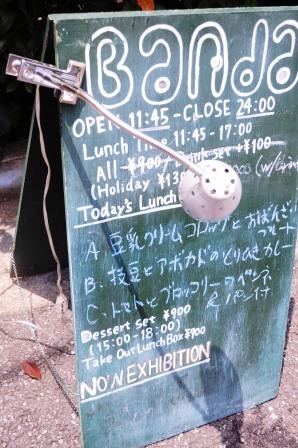 Banda
OPEN 11:45 - CLOSE 24:00
Lunch Time 11:45 - 17:00
All ¥900 Drink set +¥100
(Holiday ¥130
Today's Lunch
A. 豆乳クリームコロッケとおばんざい
プレート
B. 枝豆とアボカドのとりひきカレー
C. トマトとブロッコリーのペンネ
Dessert Set ¥900
(15:00-18:00)
Take Out Lunch Box ¥700
NOW EXHIBITION